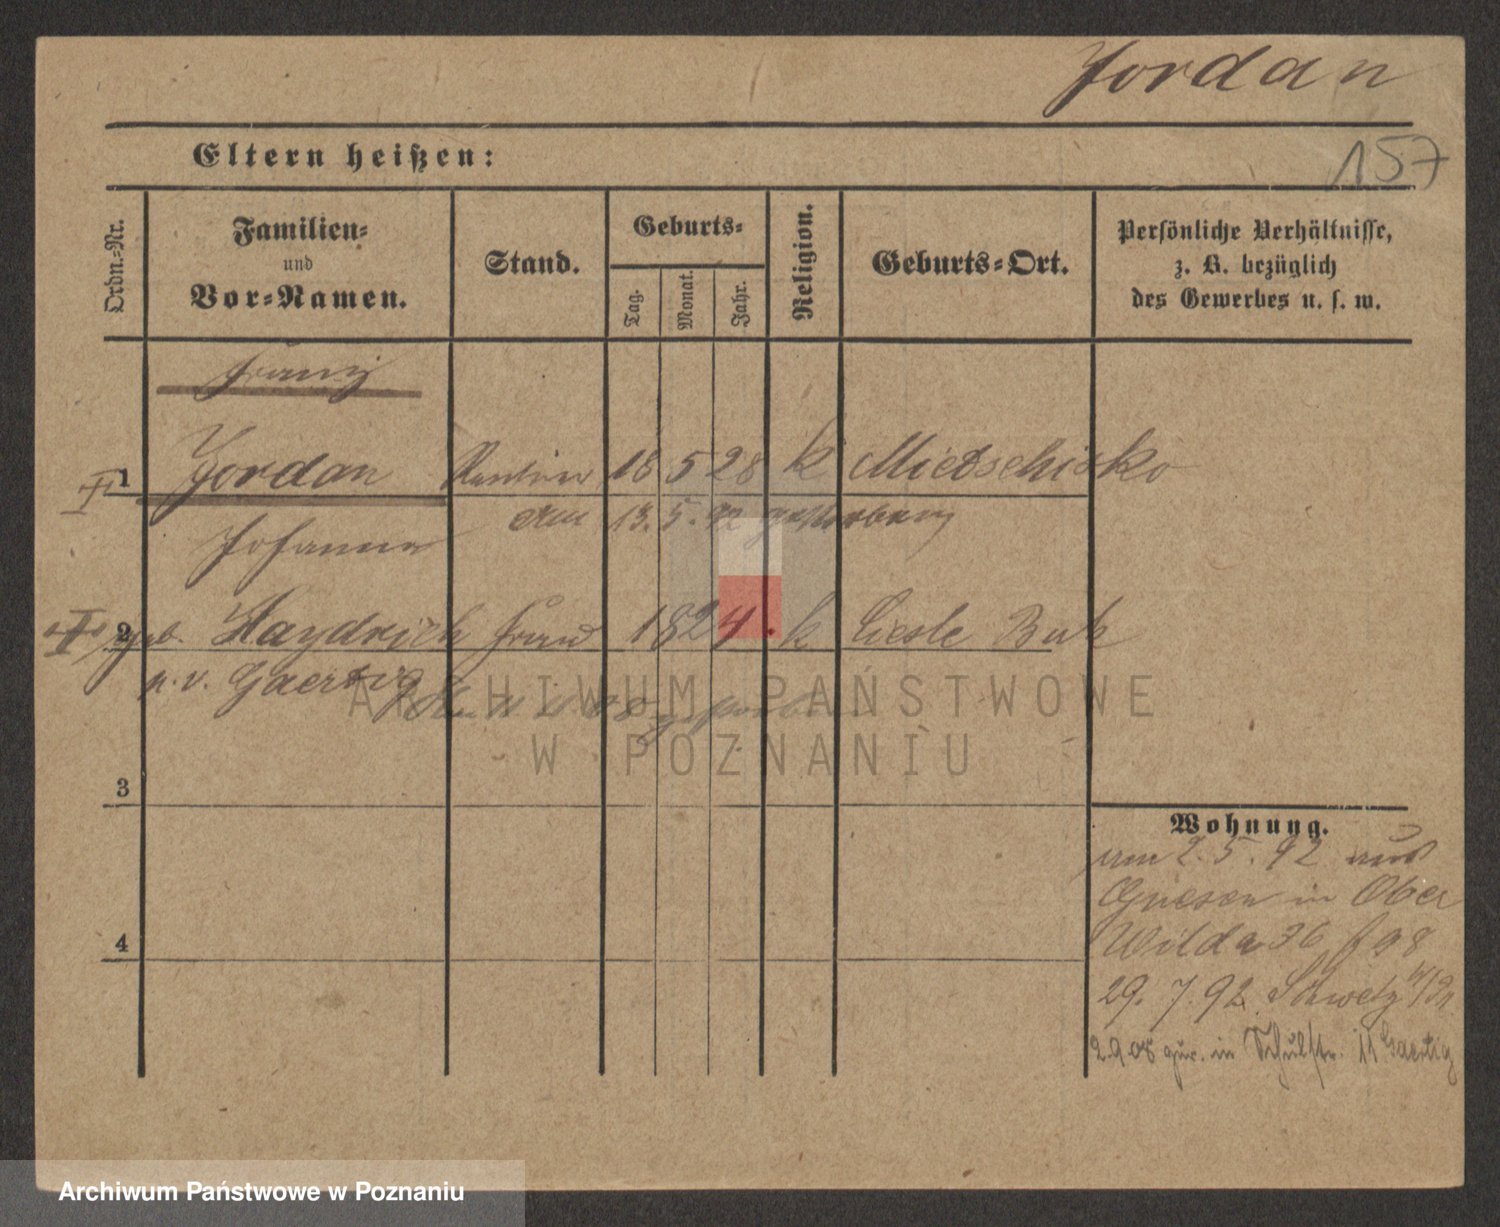 Jordan
157
Eltern heißen:
Ordn.-Nr.
Familien-
und
Vor-Namen.
Stand.
Geburts-
Tag.
Monat.
Jahr.
Religion.
Geburts-Ort.
Persönliche Verhältnisse,
z. B. bezüglich
des Gewerbes u. s. w.
Franz
1 Jordan Rentier 16 5 28 k Mietschisko
am 13.5.92 gestorben
Johanna
2 geb. Haydrich Frau 1824. k Buk
n. v. Gaertig
gestorben
ARCHIWUM PAŃSTWOWE
W POZNANIU
3
4
Wohnung.
am 2.5.92 aus
Gnesen in Ober
Wilda 36 f 98
29.7.92. Schwetz
2 9 08 zur. in Schulstr. 11 Gaertig
Archiwum Państwowe w Poznaniu